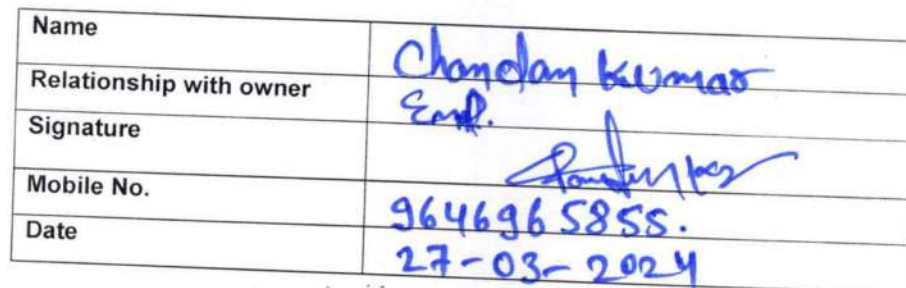 Name Chandan Kumar
Relationship with owner Emp.
Signature
Mobile No. 9646965855.
Date 27-03-2024